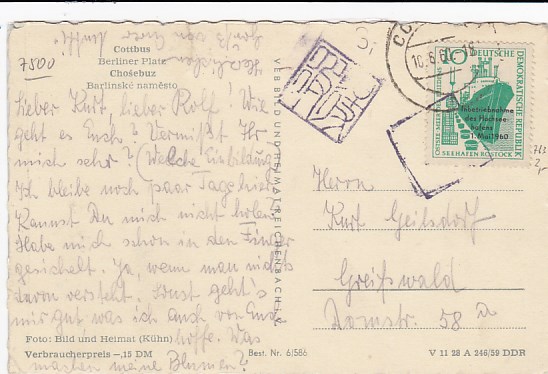 7500
Cottbus
Berliner Platz
Chośebuz
Barlinske naměsto
Herzlichen
Gruß von Eurer
Lieber Kurt, lieber Rolf! Wie
geht es Euch? Vermißt Ihr
mich sehr? (Welche Einbildung)
Ich bleibe noch paar Tage hier
Kannst Du mich nicht holen
Habe mich schon in den Finger
gesichelt. Ja, wenn man nichts
davon versteht. Sonst geht's
mir gut was ich auch von
hoffe. Was
machen meine Blumen?
Foto: Bild und Heimat (Kühn)
Verbraucherpreis -,15 DM
Best. Nr. 6/586
VEB BILD UND HEIMAT REICHENBACH I. V.
3,-
10.6.60 -18
10
DEUTSCHE
DEMOKRATISCHE REPUBLIK
Inbetriebnahme
des Hochsee-
hafens
1. Mai 1960
SEEHAFEN ROSTOCK
763
2,-
Herrn
Kurt Geilsdorf
Greifswald
Domstr. 58 a
V 11 28 A 246/59 DDR